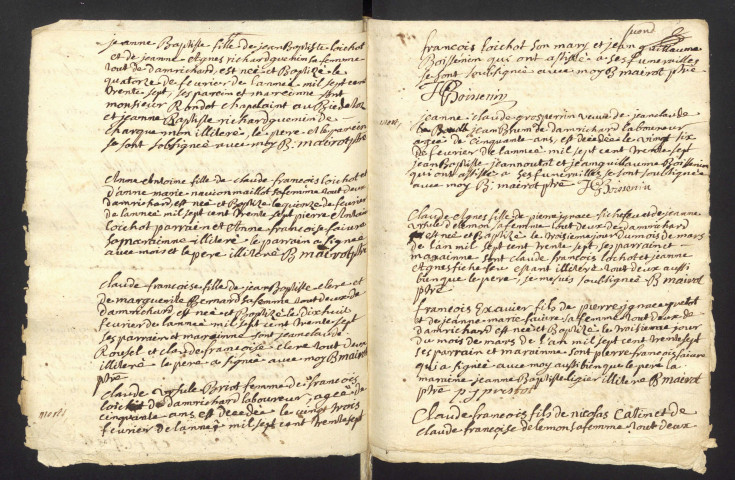 jeanne Baptiste fille de jean Baptiste loichot
et de jeanne Agnes richard quenin sa femme
tout de damrichard est neé et Baptizé le
quatorze de fevrier de lanneé mil sept cent
trente sept, ses parein et mareinne sont
monsieur chapelaint au
et jeanne Baptiste richard quenin de
charquemon illiteré, le pere et le parein
se sont sobsigneé avec moy B mairot ptre
Anne Antoine fille de claude francois loichot et
danne marie maillot sa femme tout deux
damrichard est neé et Baptizé le quinze de fevrier
de lanneé mil sept cent trente sept pierre Antoine
loichot parrain et Anne francoise faivre
sa marainne illiteré le parain a signeé
avec moi et le pere illiteré B mairot ptre
claude francoise fille de jean Baptiste clerc et
de marguerite Bernard sa femme tout deux de
damrichard est neé et Baptizé le dixhuit
fevrier de lanneé mil sept cent trente sept
ses parrain et marainne sont jean claude
Rousel et claude francoise clerc tout deux
illiteré le pere a signeé avec moy B mairot
ptre
morts
claude ursule Briot femme de francois
loichot de damrichard laboureur, ageé de
cinquante ans est decedeé le vingt trois
fevrier de lanneé mil sept cent trente sept
francois loichot son mary et jean guillaume
Boissenin qui ont assisté a ses funerailles
se sont soussigneé avec moy B mairot ptre
Boissenin
mort
jeanne claude grosperrin veuve de jean claude
jean Brun de damrichard laboureur
ageé de cinquante ans, est decedeé le vingt six
de fevrier de lanneé mil sept cent trente sept
jean Baptiste jeannoutot et jean guillaume Boissenin
qui ont assisté a ses funerailles se sont soussigneé
avec moy B mairot ptre Boissenin
Claude Agnes fille de pierre ignace ficheseu et de jeanne
ursule delemon sa femme tout deux de damrichard
est neé et Baptizé le troisieme jour du mois de mars
de lan mil sept cent trente sept ses parrain et
marainne sont claude francois loichot et jeanne
Agnes ficheseu estant illiteré tout deux aussi
bien que le pere, je me suis soussigneé B mairot
ptre
francois Exavier fils de pierre ignace
et de jeanne marie faivre sa femme tout deux de
damrichard est neé et Baptizé le troisieme jour
du mois de mars de lan mil sept cent trente sept
ses parrain et marainne sont pierre francois faivre
qui a signeé avec moy aussi bien que le pere la
maraine jeanne Baptiste ligier illiteré B mairot
ptre
Claude francois fils de nicolas Cattinet de
claude francoise delemon sa femme tout deux